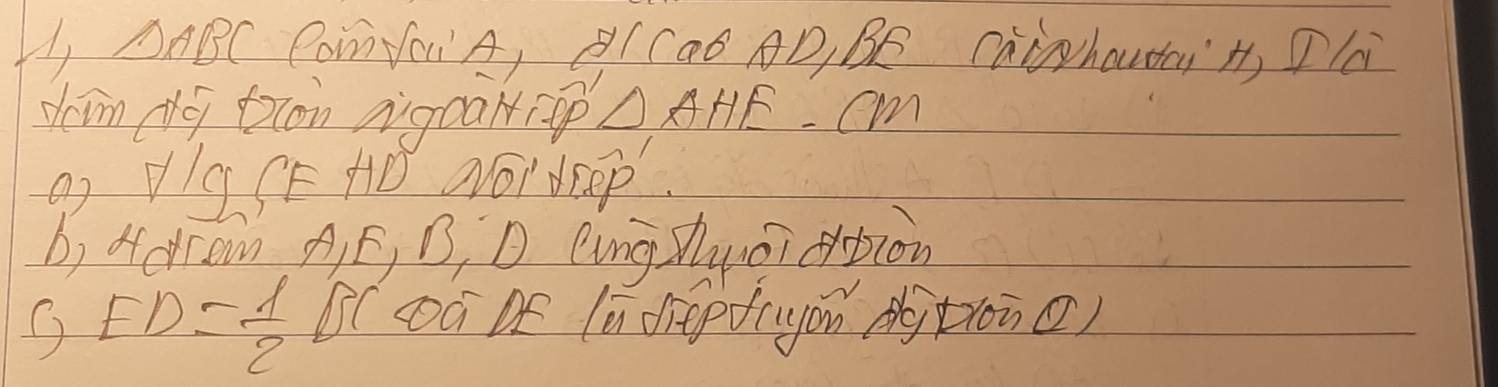 1, ΔABC cân tại A, đ/cao AD, BE cắt nhau tại H, I là
tâm đg tròn ngoại tiếp Δ AHE. CM
a, t/g CEHD nội tiếp.
b, 4 điểm A, E, B, D cùng thuộc đ tròn
c, ED = 1/2 BC và DE là tiếp tuyến đg tròn (I)